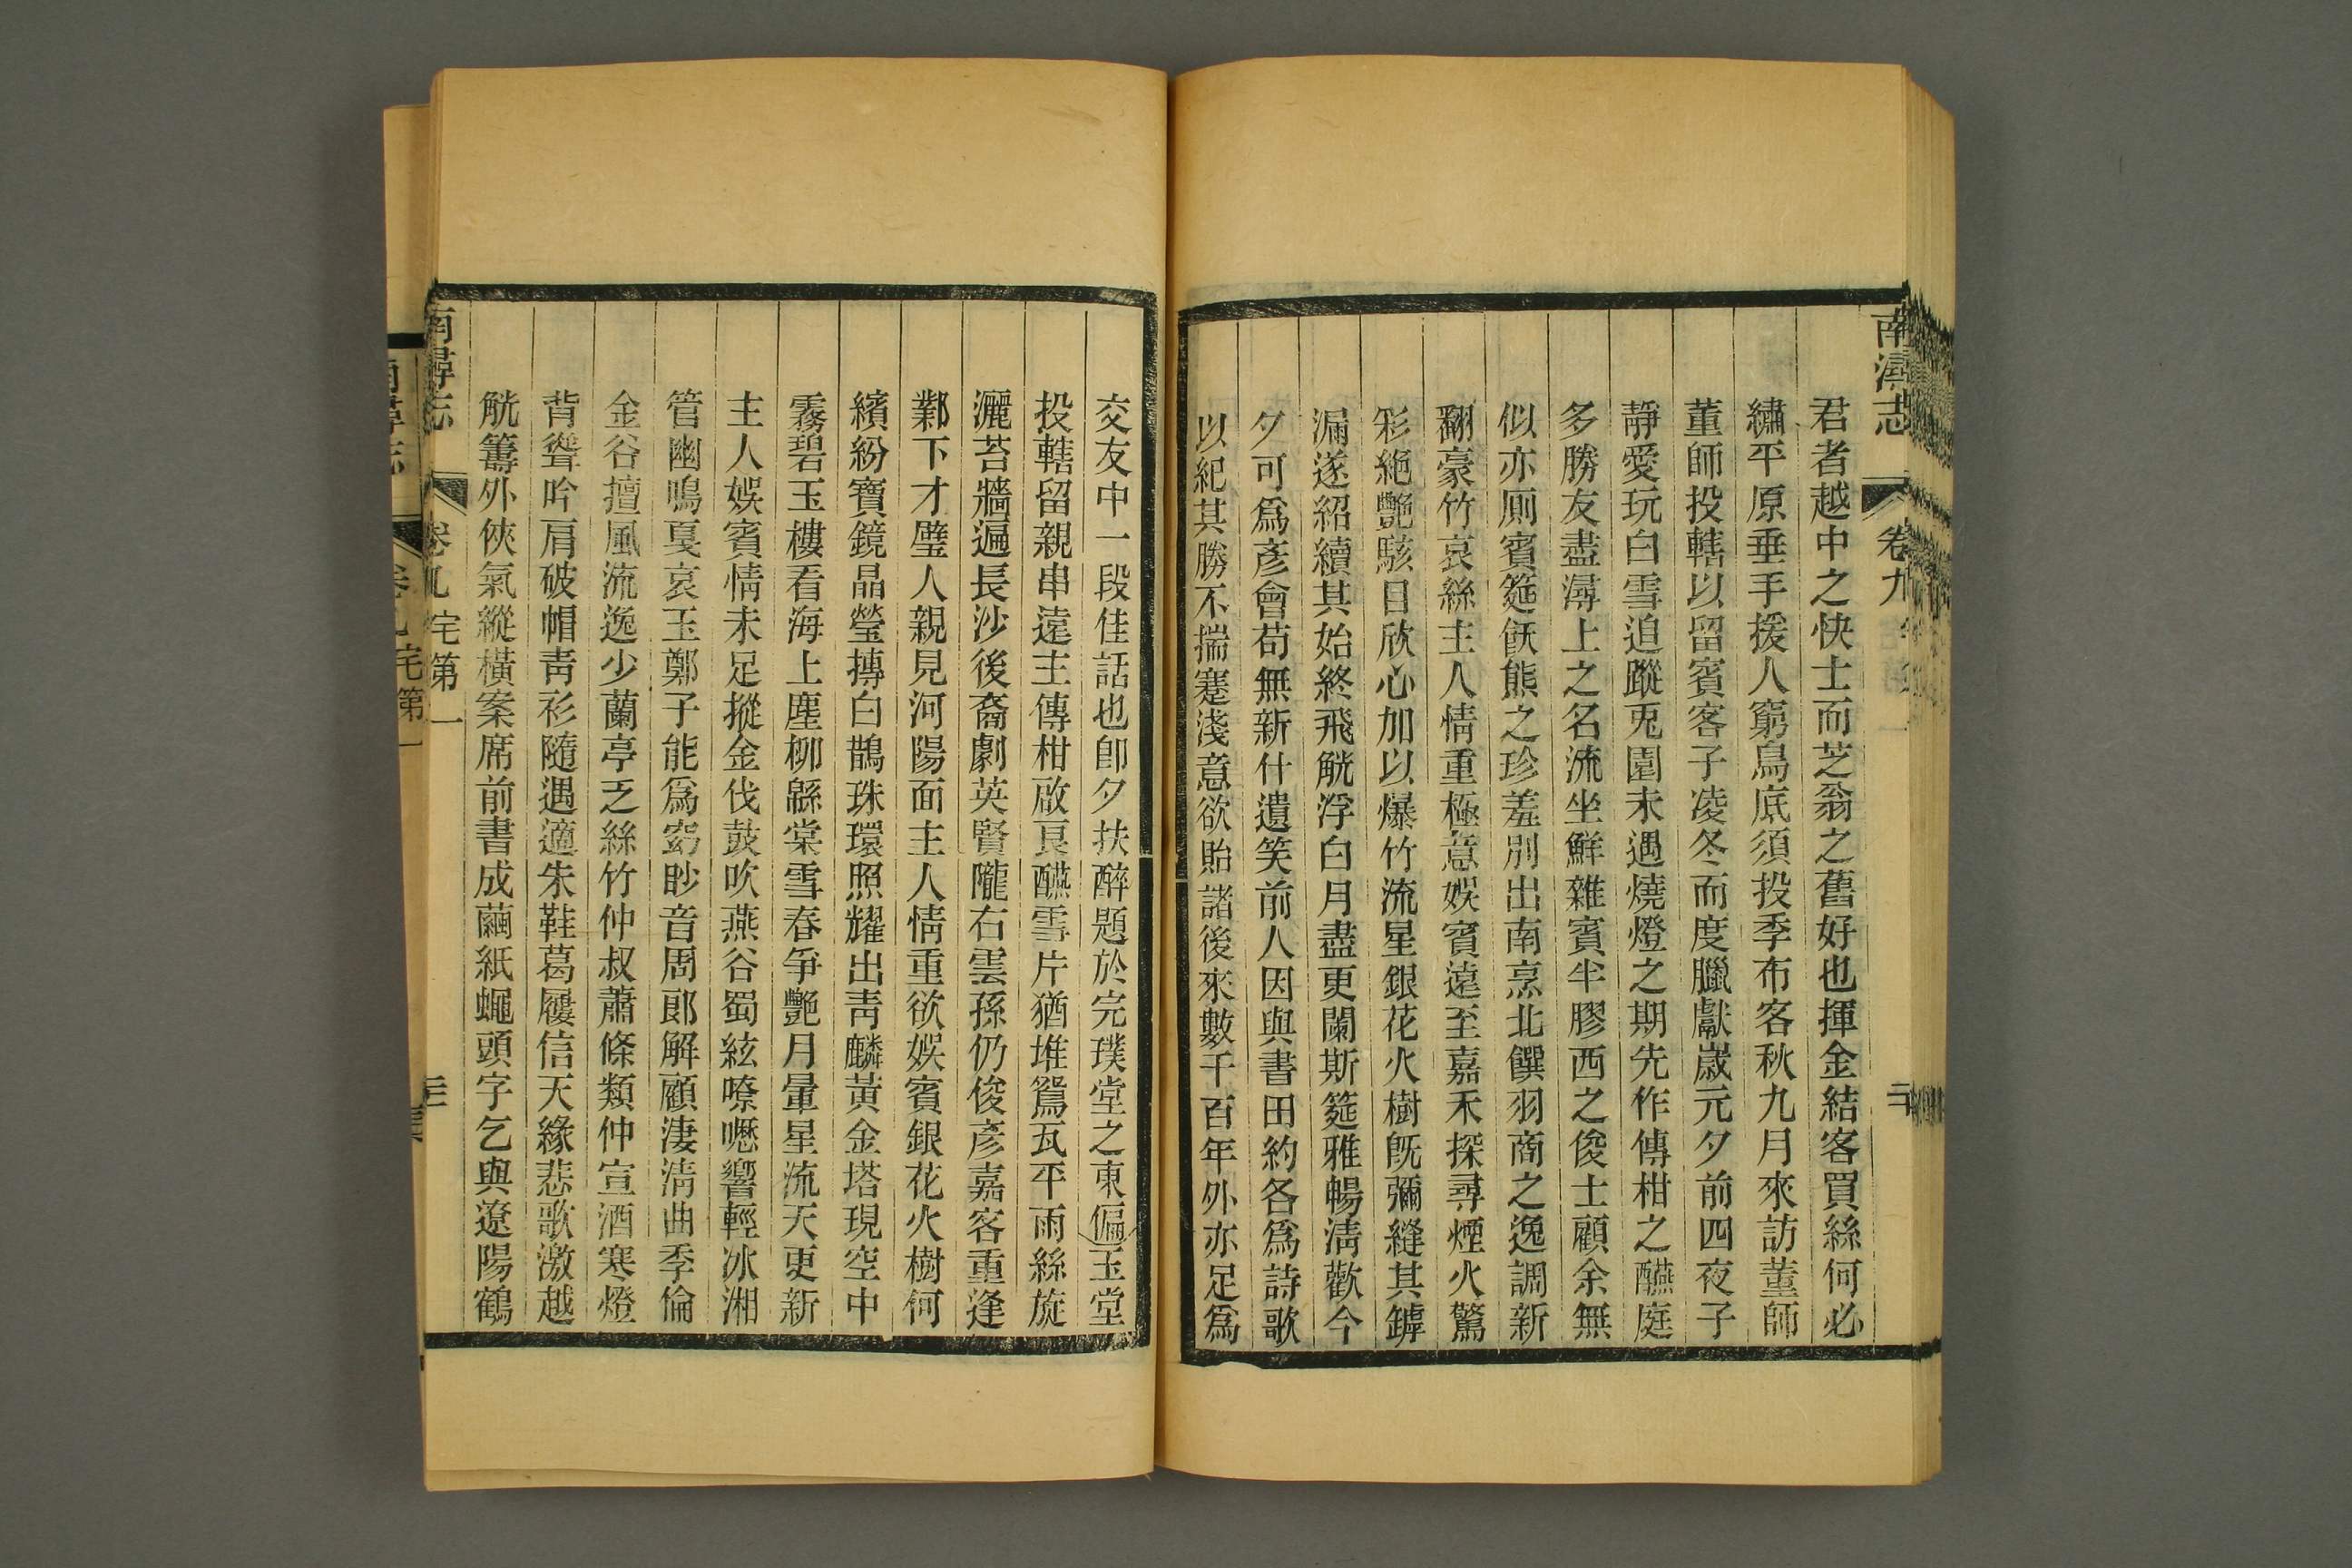 南潯志
卷九
二
君者越中之快士而芝翁之舊好也揮金結客買絲何必
繡平原垂手援人窮鳥底須投季布客秋九月來訪董師
董師投轄以留賓客子凌冬而度臘獻嵗元夕前四夜子
靜愛玩白雪追蹤兎園未遇燒燈之期先作傳柑之醼庭
多勝友盡潯上之名流坐鮮雜賓半膠西之俊士顧余無
似亦厠賓筵飫熊之珍羞別出南烹北饌羽商之逸調新
翻豪竹哀絲主人情重極意娛賓遠至嘉禾探尋煙火驚
彩絶艷駭目欣心加以爆竹流星銀花火樹旣彌縫其罅
漏遂紹續其始終飛觥浮白月盡更闌斯筵雅暢淸歡今
夕可爲彥會苟無新什遺笑前人因與書田約各爲詩歌
以紀其勝不揣蹇淺意欲貽諸後來數千百年外亦足爲
交友中一段佳話也卽夕扶醉題於完璞堂之東偏玉堂
投轄留親串遠主傳柑啟㫰醼雪片猶堆鴛瓦平雨絲旋
灑苔牆遍長沙後裔劇英賢隴右雲孫仍俊彥嘉客重逢
鄴下才璧人親見河陽面主人情重欲娛賓銀花火樹何
繽紛寶鏡晶瑩摶白鵲珠環照耀出靑麟黃金塔現空中
霧碧玉樓看海上塵柳緜棠雪春爭艷月暈星流天更新
主人娛賓情未足摐金伐鼓吹燕谷蜀絃嘹嘒響輕冰湘
管幽鳴戛哀玉鄭子能爲窈眇音周郞解顧淒淸曲季倫
金谷擅風流逸少蘭亭乏絲竹仲叔蕭條類仲宣酒寒燈
背聳吟肩破帽靑衫隨遇適朱鞋葛屨信天緣悲歌激越
觥籌外俠氣縱橫案席前書成繭紙蠅頭字乞與遼陽鶴
南潯志
卷九
宅第一
三
南潯志
宅第一